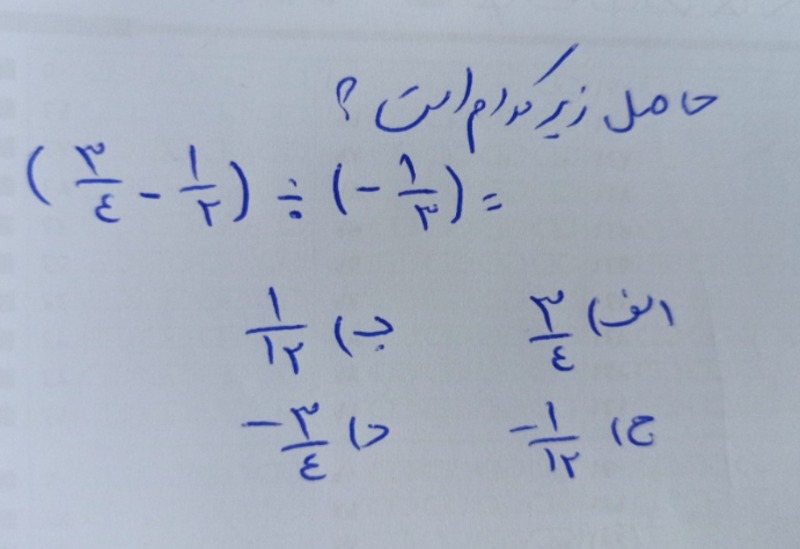 حاصل زیر کدام است؟
(۳/٤ - ۱/۲) ÷ (- ۱/۳) =
الف) ۳/٤ ب) ۱/۱۲
ج) - ۱/۱۲ د) - ۳/٤